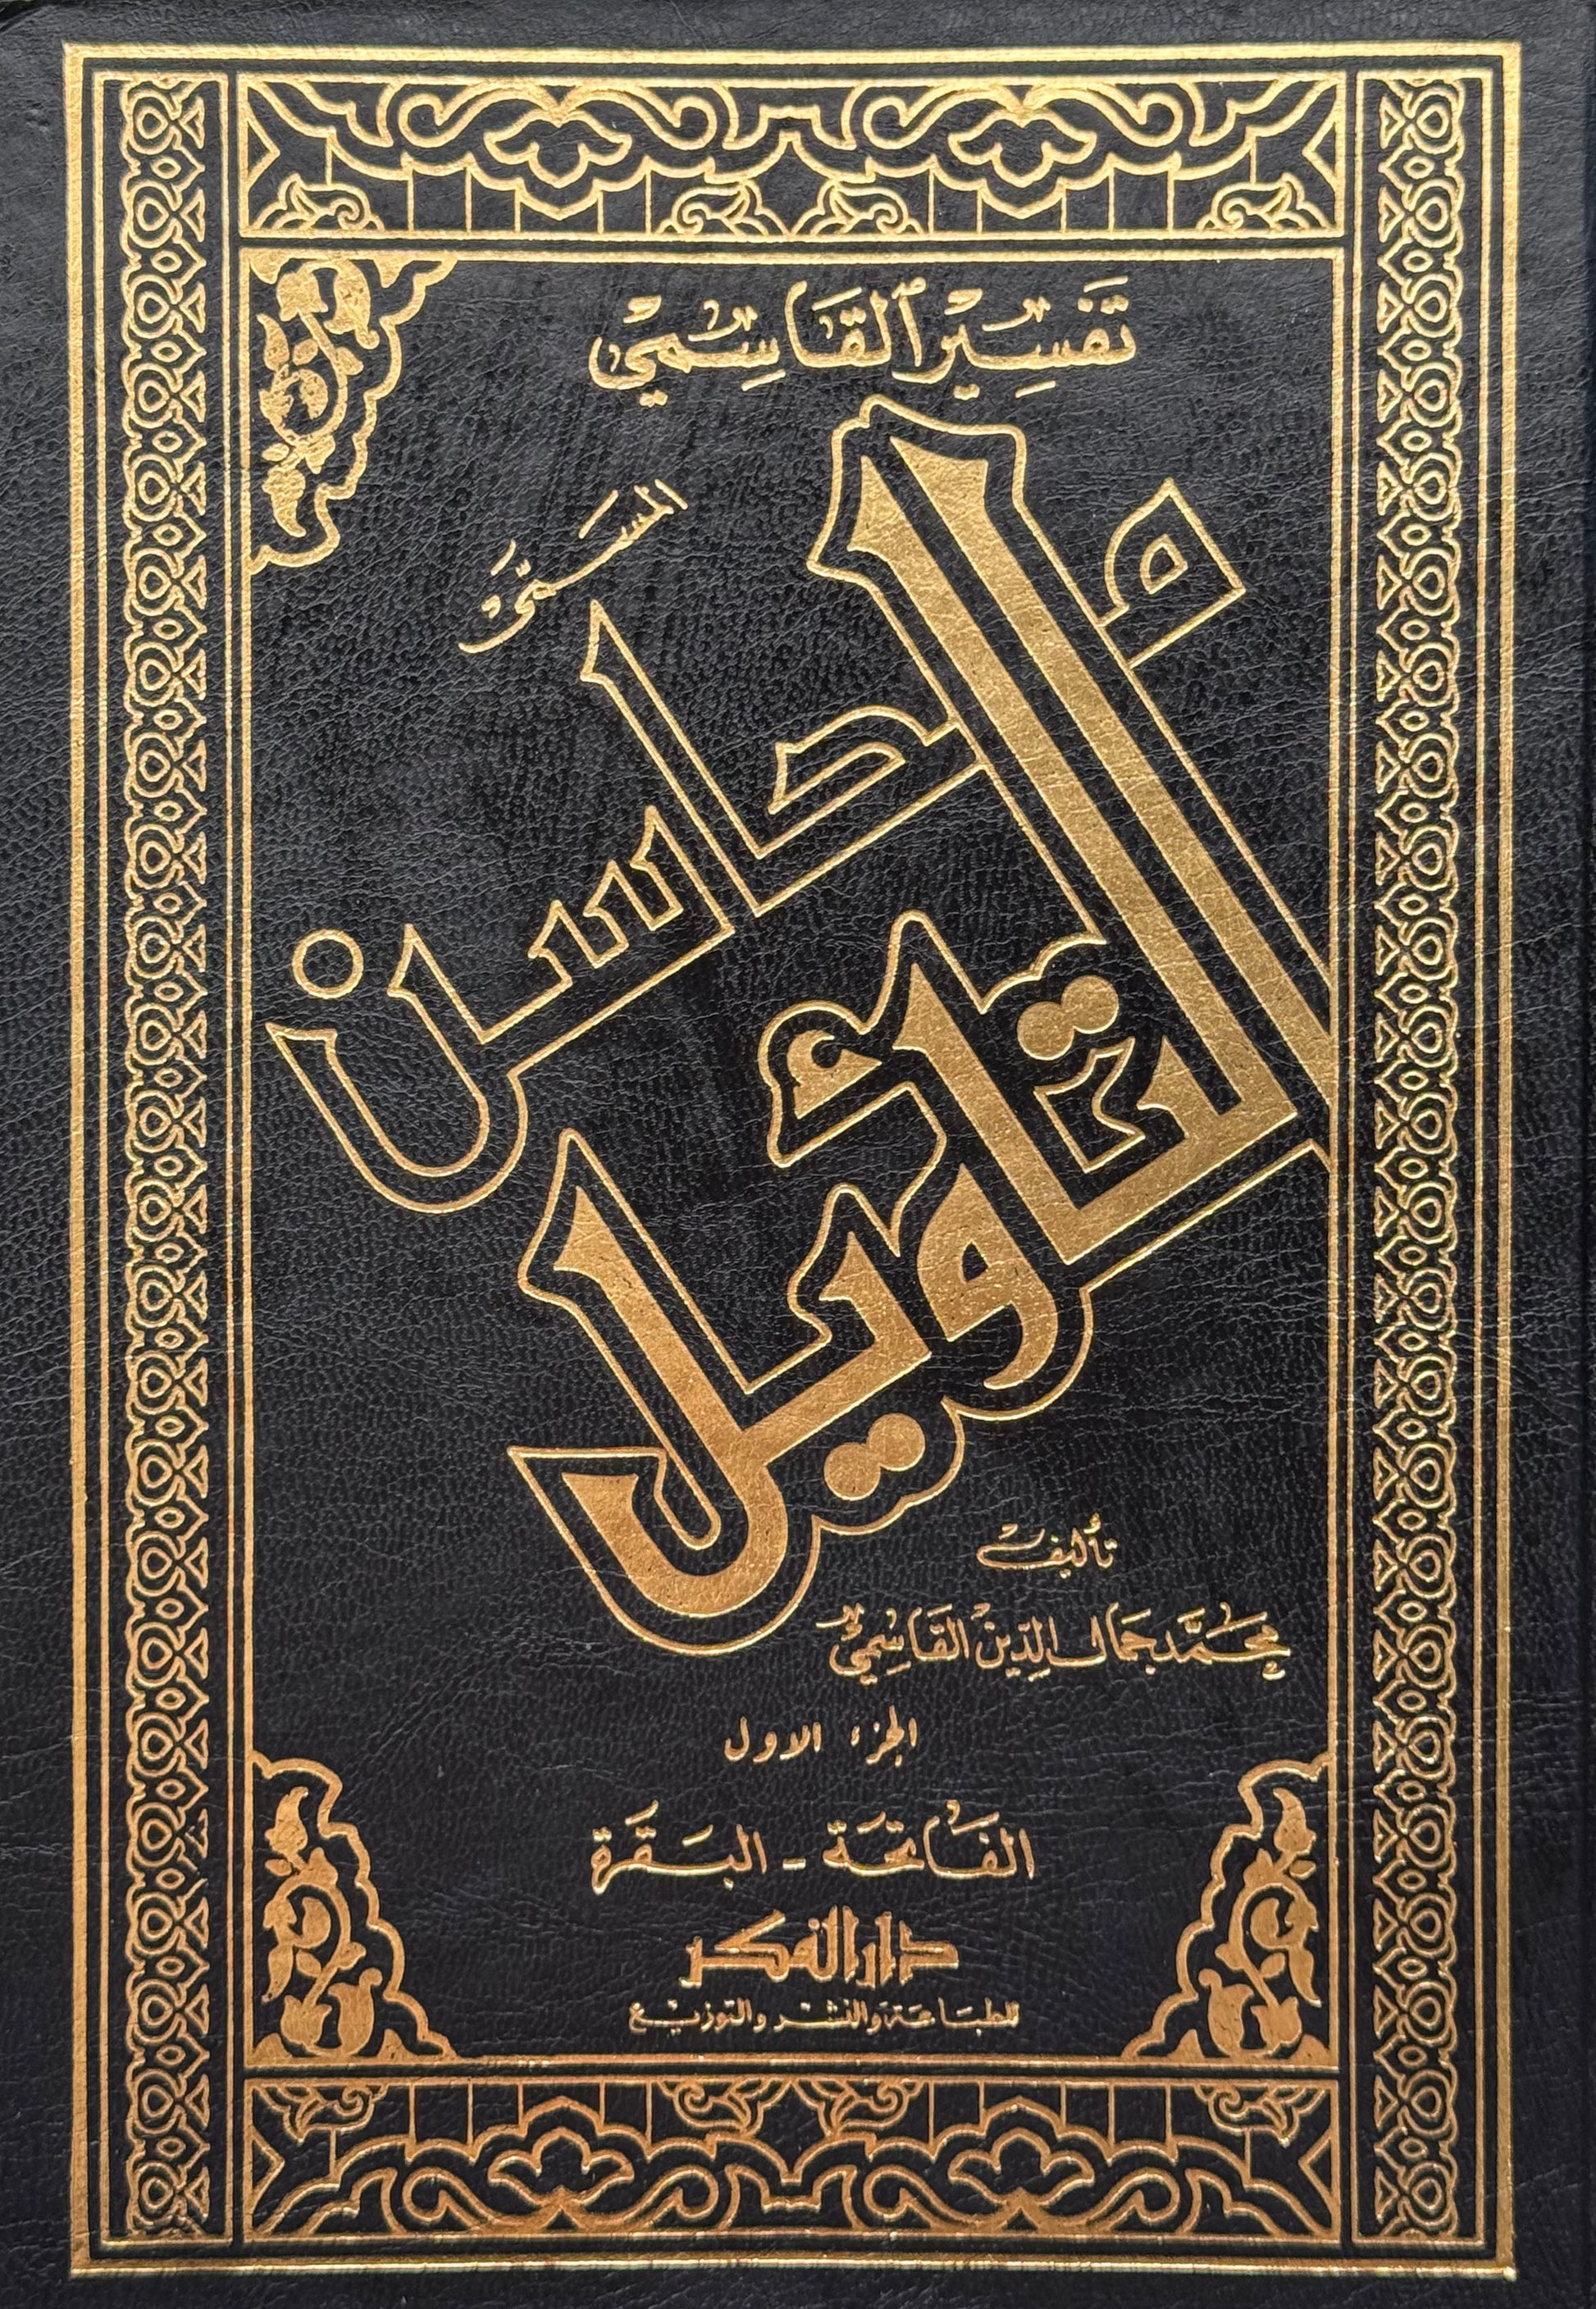 تَفسِير القَاسِمي
المسَمّى
محاسن
التأويل
تأليف
محمَّد جمَال الدّين القَاسِميّ
الجزء الاول
الفَاتحَة - البَقَرة
دار الفكر
للطبَاعَة وَالنشر والتوزيع